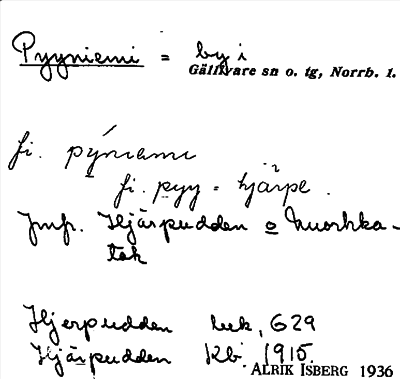 Pyyniemi = by i
Gällivare sn o. tg, Norrb. l.
fi. pyniemi
fi. pyy = hjärpe.
Jmfr. Hjärpudden o Muorhka-
tak
Hjerpudden bek, 629
Hjärpudden Kb. 1915.
ALRIK ISBERG 1936